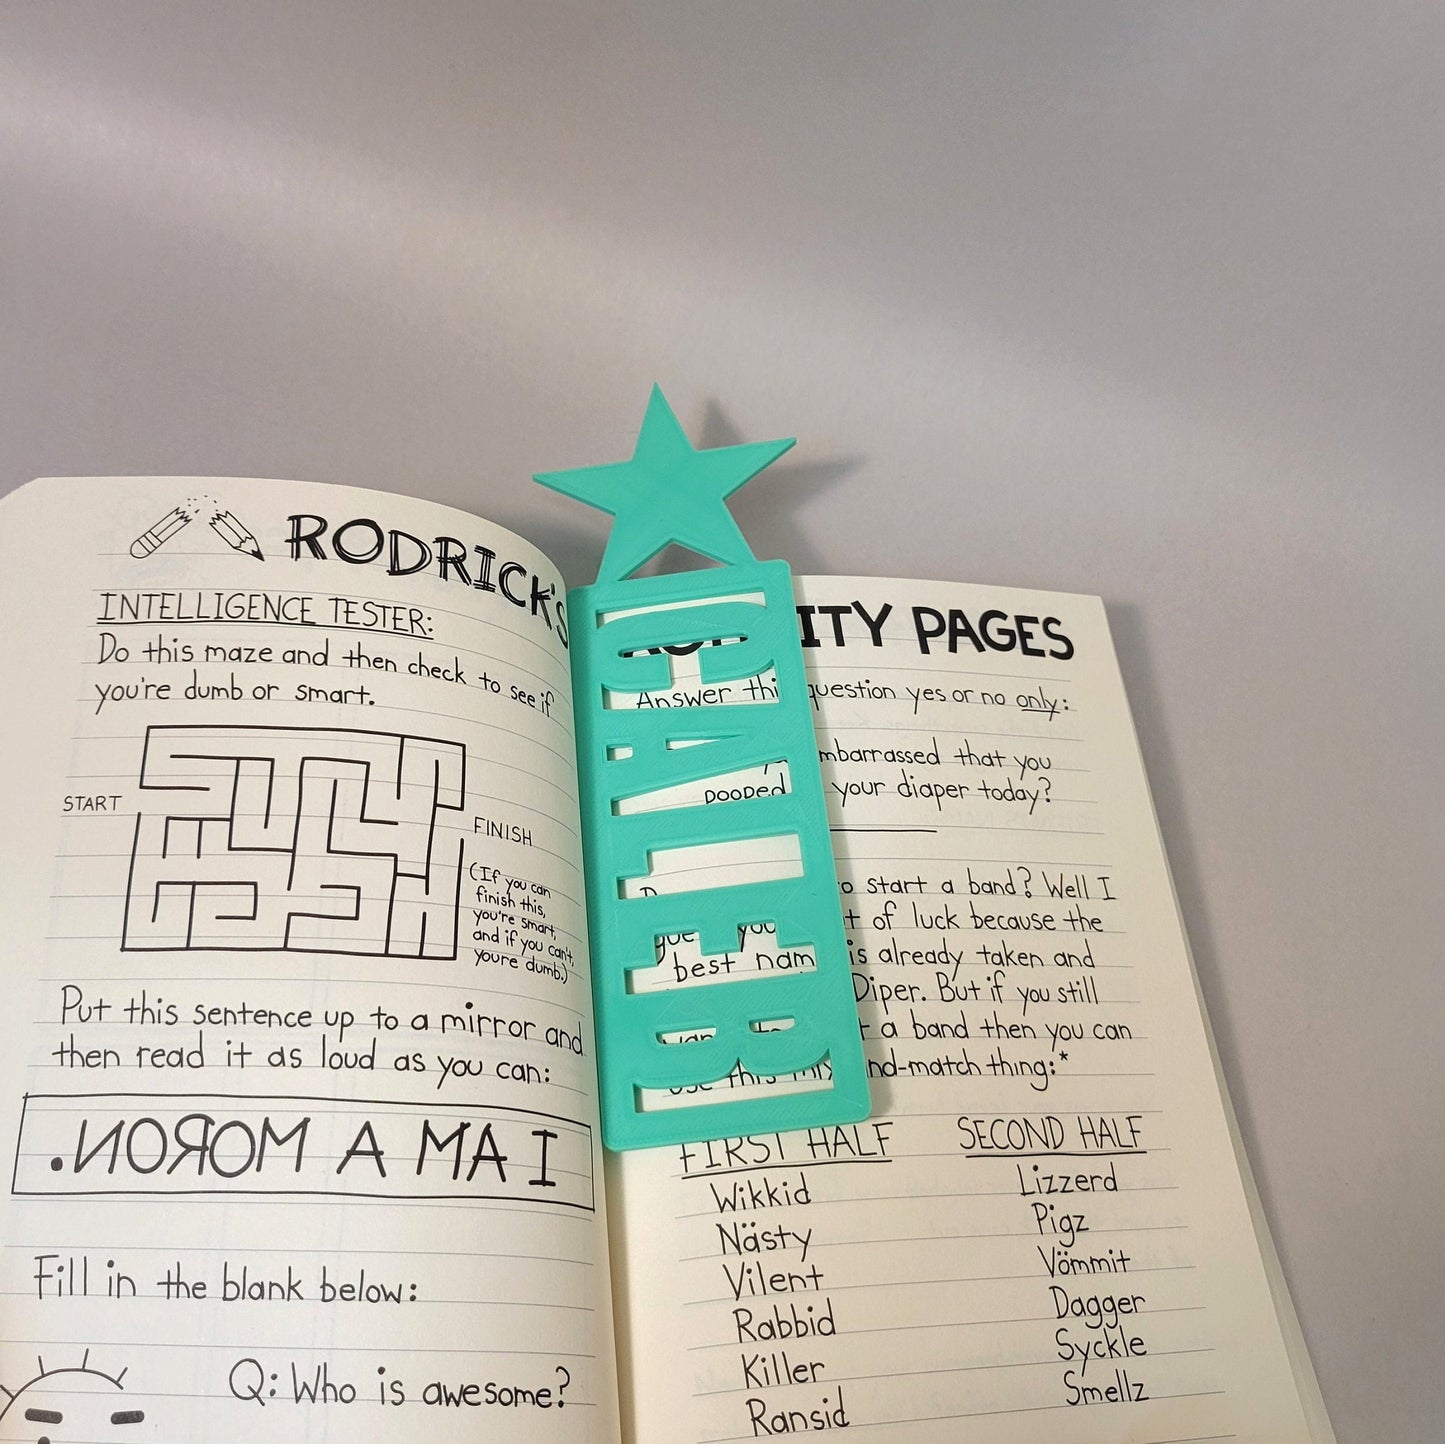 RODRICK'S
INTELLIGENCE TESTER:
Do this maze and then check to see if
you're dumb or smart.
START
FINISH
(If you can
finish this,
you're smart,
and if you can't,
you're dumb.)
Put this sentence up to a mirror and
then read it as loud as you can:
.NOROM A MA I
Fill in the blank below:
Q: Who is awesome?
CALEB
PAGES
Answer question yes or no only:
that you
your diaper today?
start a band? Well I
of luck because the
best is already taken and
Diper. But if you still
a band then you can
thing:*
FIRST HALF SECOND HALF
Wikkid Lizzerd
Nästy Pigz
Vilent Vömmit
Rabbid Dagger
Killer Syckle
Ransid Smellz